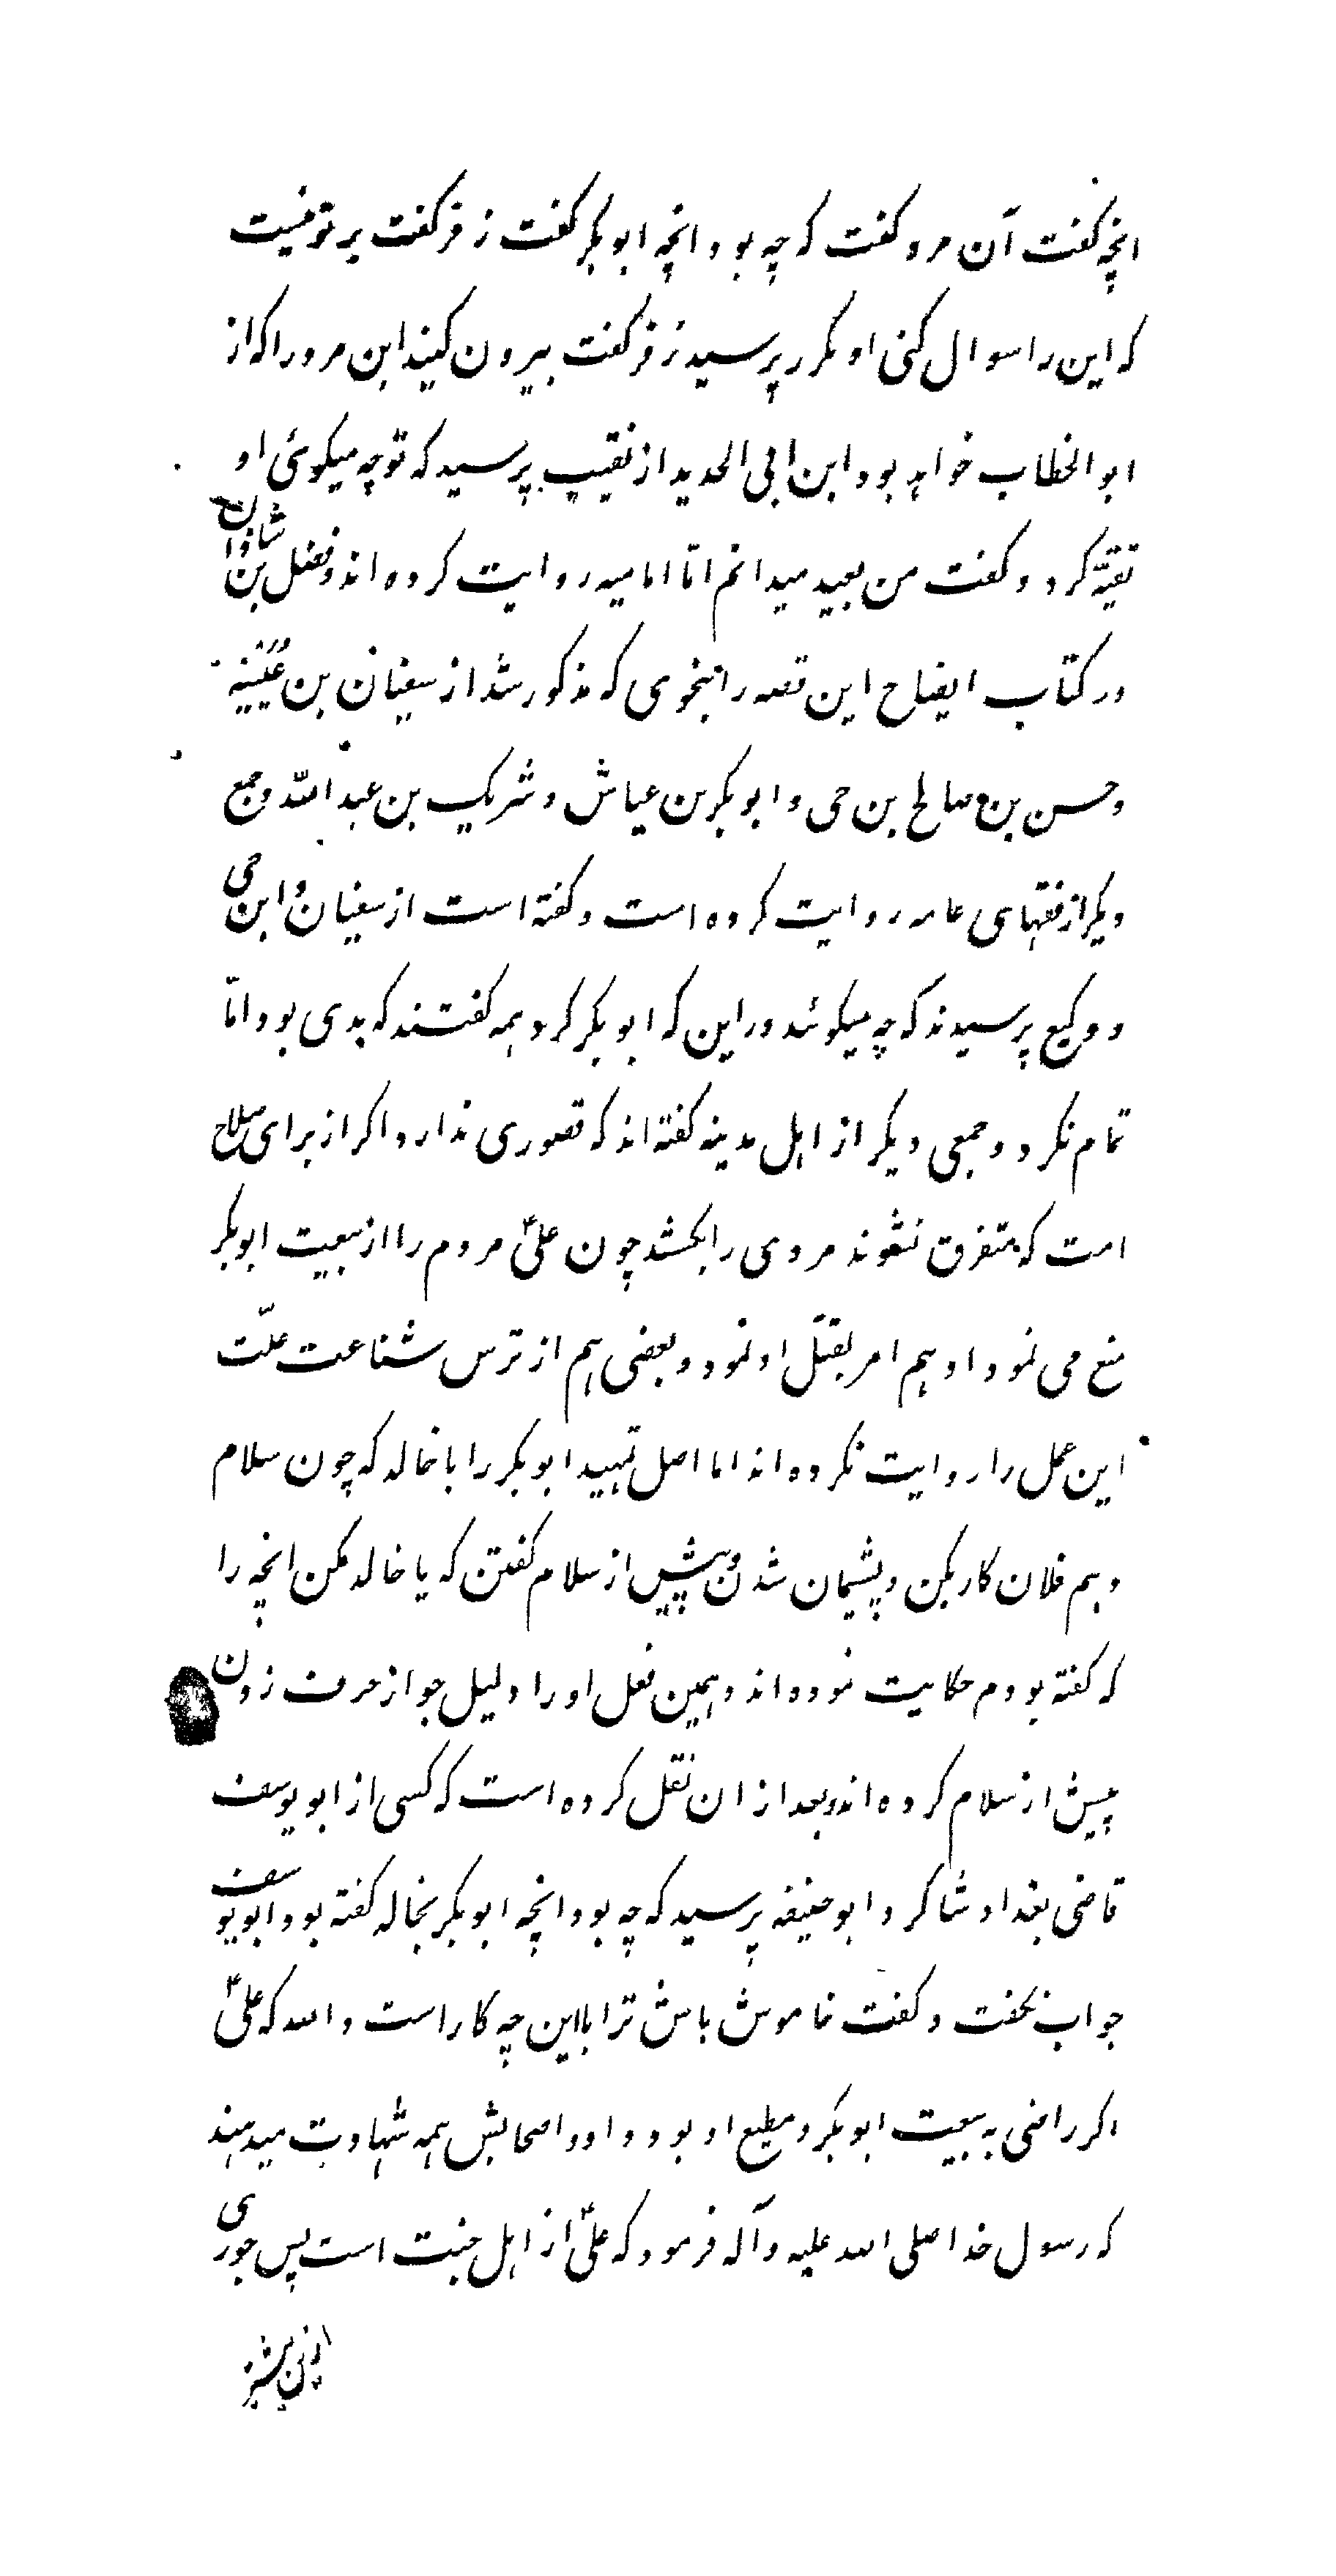 انچه گفت آن مرد گفت که چه بود انچه ابوبکر گفت زفر گفت بر تو نیست
که این را سوال کنی او مکرر پرسید زفر گفت بیرون کنید این مرد را که از
ابوالخطاب خواهد بود ابن ابی الحدید از نقیب پرسید که تو چه میکوئی او
تقیّه کرد و گفت من بعید میدانم امّا امامیه روایت کرده اند و فضل بن شاذان
در کتاب ایضاح این قصه را بنحوی که مذکور شد از سفیان بن عُیَیْنِیه
و حسن بن صالح بن حی و ابوبکر بن عیاش و شریک بن عبد الله و جمع
دیکر از فقهای عامه روایت کرده است و گفته است از سفیان و ابن حی
و وکیع پرسیدند که چه میکوئید در این که ابوبکر کرد همه گفتند که بدی بود امّا
تمام نکرد و جمعی دیکر از اهل مدینه گفته اند که قصوری ندارد اکر از برای صلاح
امت که متفرق نشوند مردی را بکشد چون علیؑ مردم را از بیعت ابوبکر
منع می نمود او هم امر بقتل او نمود و بعضی هم از ترس شناعت علّت
این عمل را روایت نکرده اند اما اصل تهید ابوبکر را با خالد که چون سلام
دهم فلان کار بکن و پشیمان شدن و پیش از سلام گفتن که یا خالد مکن انچه را
که گفته بودم حکایت نموده اند و همین فعل او را دلیل جواز حرف زدن
پیش از سلام کرده اند و بعد از ان نقل کرده است که کسی از ابو یوسف
قاضی بغداد شاکرد ابو حنیفه پرسید که چه بود انچه ابوبکر بخالد گفته بود ابو یوسف
جواب نکفت و گفت خاموش باش ترا با این چه کار است والله که علیؑ
اکر راضی به بیعت ابوبکر و مطیع او بود و او و اصحابش همه شهادت میدهند
که رسول خدا صلی الله علیه و آله فرمود که علیؑ از اهل جنت است پس جوری